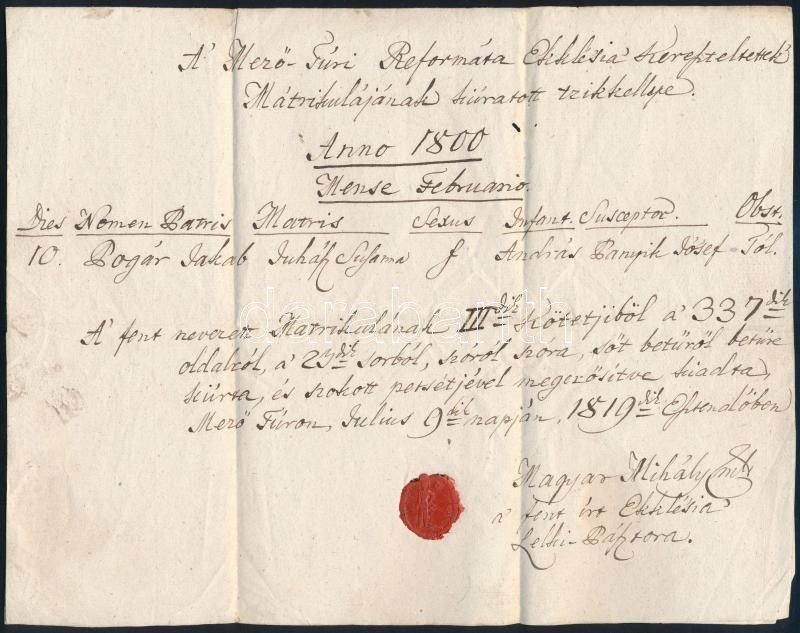 A' Mező-Túri Reformáta Ekklésia' kereſzteltettek'
Mátrikulájának kiíratott tzikkellye.
Anno 1800
Mense Februario.
Dies Nomen Patris Matris Sexus Infant. Susceptor. Obst.
10. Bogár Jakab Juháſz Susanna f András Panyik Jósef Tól.
A' fent nevezett Matrikulának III dik Kötetjiből a' 337 dik
oldalról, a' 25 dik sorból, szóról szóra, sőt betűről betűre
kiírta, és szokott petsétjével megerősítve kiadta,
Mező Túron, Julius 9 dik napján, 1819 dik Eſztendőben
Magyar Mihály mk
a' fent írt Ekklésia'
Lelki-Páſztora.
darabanth